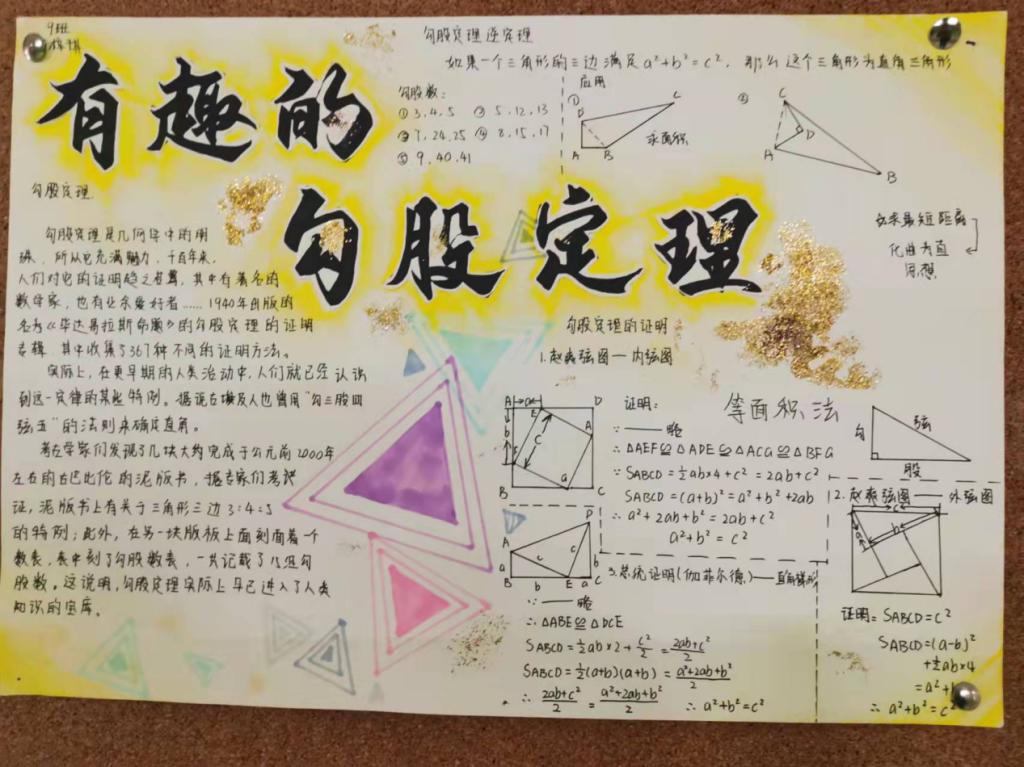 9班
有趣的
勾股定理
勾股定理逆定理
如果一个三角形的三边满足a²+b²=c², 那么这个三角形为直角三角形
勾股数:
①3,4,5 ②5,12,13
③7,24,25 ④8,15,17
⑤9,40,41
应用
①
D
C
A
B
求面积
②
C
D
A
B
立体最短距离
化曲为直
思想
勾股定理
勾股定理是几何学中的明
珠, 所以它充满魅力, 千百年来,
人们对它的证明趋之若鹜, 其中有著名的
数学家, 也有业余爱好者……1940年出版的
名为《毕达哥拉斯命题》的勾股定理的证明
专辑, 其中收集了367种不同的证明方法。
实际上, 在更早期的人类活动中, 人们就已经认识
到这一定律的某些特例。据说古埃及人也曾用“勾三股四
弦五”的法则来确定直角。
考古学家们发现了几块大约完成于公元前2000年
左右的古巴比伦的泥版书, 据专家们考证
证, 泥版书上有关于三角形三边3:4:5
的特例; 此外, 在另一块版板上面刻面着一个
数表, 表中刻了勾股数表, 一共记载了15组勾
股数。这说明, 勾股定理实际上早已进入了人类
知识的宝库。
勾股定理的证明
1.赵爽弦图——内弦图
A a E D
b
C
A
F
B a C
证明:
等面积法
∵——略
∴△AEF≌△ADE≌△ACG≌△BFG
∵SABCD=½ab×4+c²=2ab+c²
SABCD=(a+b)²=a²+b²+2ab
∴a²+2ab+b²=2ab+c²
a²+b²=c²
勾
弦
股
2.赵爽弦图——外弦图
c
a
b
证明: SABCD=c²
SABCD=(a-b)²
+½ab×4
=a²+b
∴a²+b²=c²
3.总统证明(伽菲尔德)——直角梯形
D
A
a
c
c
b
B b E a C
∵——略
∴△ABE≌△DCE
SABCD=½ab×2+c²/2=2ab+c²/2
SABCD=½(a+b)(a+b)=a²+2ab+b²/2
∴2ab+c²/2=a²+2ab+b²/2 ∴a²+b²=c²